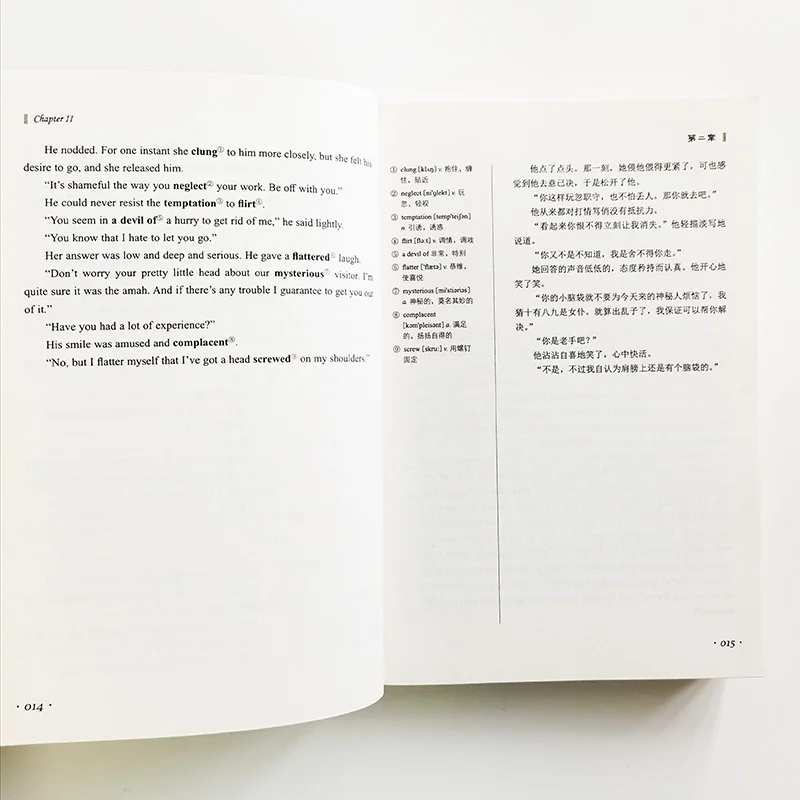 Chapter II
He nodded. For one instant she clung① to him more closely, but she felt his
desire to go, and she released him.
“It’s shameful the way you neglect② your work. Be off with you.”
He could never resist the temptation③ to flirt④.
“You seem in a devil of⑤ a hurry to get rid of me,” he said lightly.
“You know that I hate to let you go.”
Her answer was low and deep and serious. He gave a flattered⑥ laugh.
“Don’t worry your pretty little head about our mysterious⑦ visitor. I’m
quite sure it was the amah. And if there’s any trouble I guarantee to get you out
of it.”
“Have you had a lot of experience?”
His smile was amused and complacent⑧.
“No, but I flatter myself that I’ve got a head screwed⑨ on my shoulders.”
· 014 ·
第二章
① clung [klʌŋ] v. 抱住，缠
住，贴近
② neglect [ni'glekt] v. 玩
忽，轻视
③ temptation [temp'teiʃən]
n. 引诱，诱惑
④ flirt [flə:t] v. 调情，调戏
⑤ a devil of 非常，特别
⑥ flatter ['flætə] v. 恭维，
使喜悦
⑦ mysterious [mi'stiəriəs]
a. 神秘的，莫名其妙的
⑧ complacent
[kəm'pleisənt] a. 满足
的，扬扬自得的
⑨ screw [skru:] v. 用螺钉
固定
他点了点头。那一刻，她偎他偎得更紧了，可也感
觉到他去意已决，于是松开了他。
“你这样玩忽职守，也不怕丢人。那你就去吧。”
他从来都对打情骂俏没有抵抗力。
“看起来你恨不得立刻让我消失。”他轻描淡写地
说道。
“你又不是不知道，我是舍不得你走。”
她回答的声音低低的，态度矜持而认真。他开心地
笑了笑。
“你的小脑袋就不要为今天来的神秘人烦恼了，我
猜十有八九是女仆。就算出乱子了，我保证可以帮你解
决。”
“你是老手吧？”
他沾沾自喜地笑了，心中快活。
“不是，不过我自认为肩膀上还是有个脑袋的。”
· 015 ·